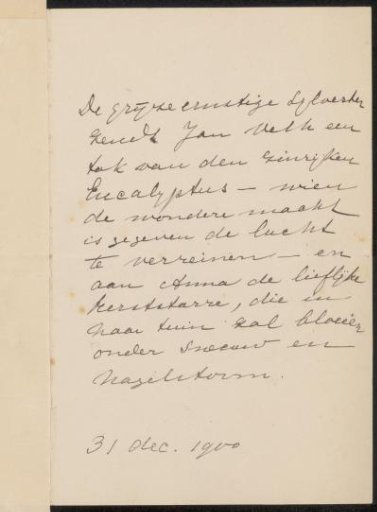 De grijze ernstige Sylvester
zendt Jan Veth een
tak van den zinrijken
Eucalyptus – wien
de wondere maakt
is gegeven de lucht
te verreinen – en
aan Anna de lieflijke
kerststarre, die in
haar tuin zal bloeien
onder sneeuw en
hagelstorm.
31 dec. 1900